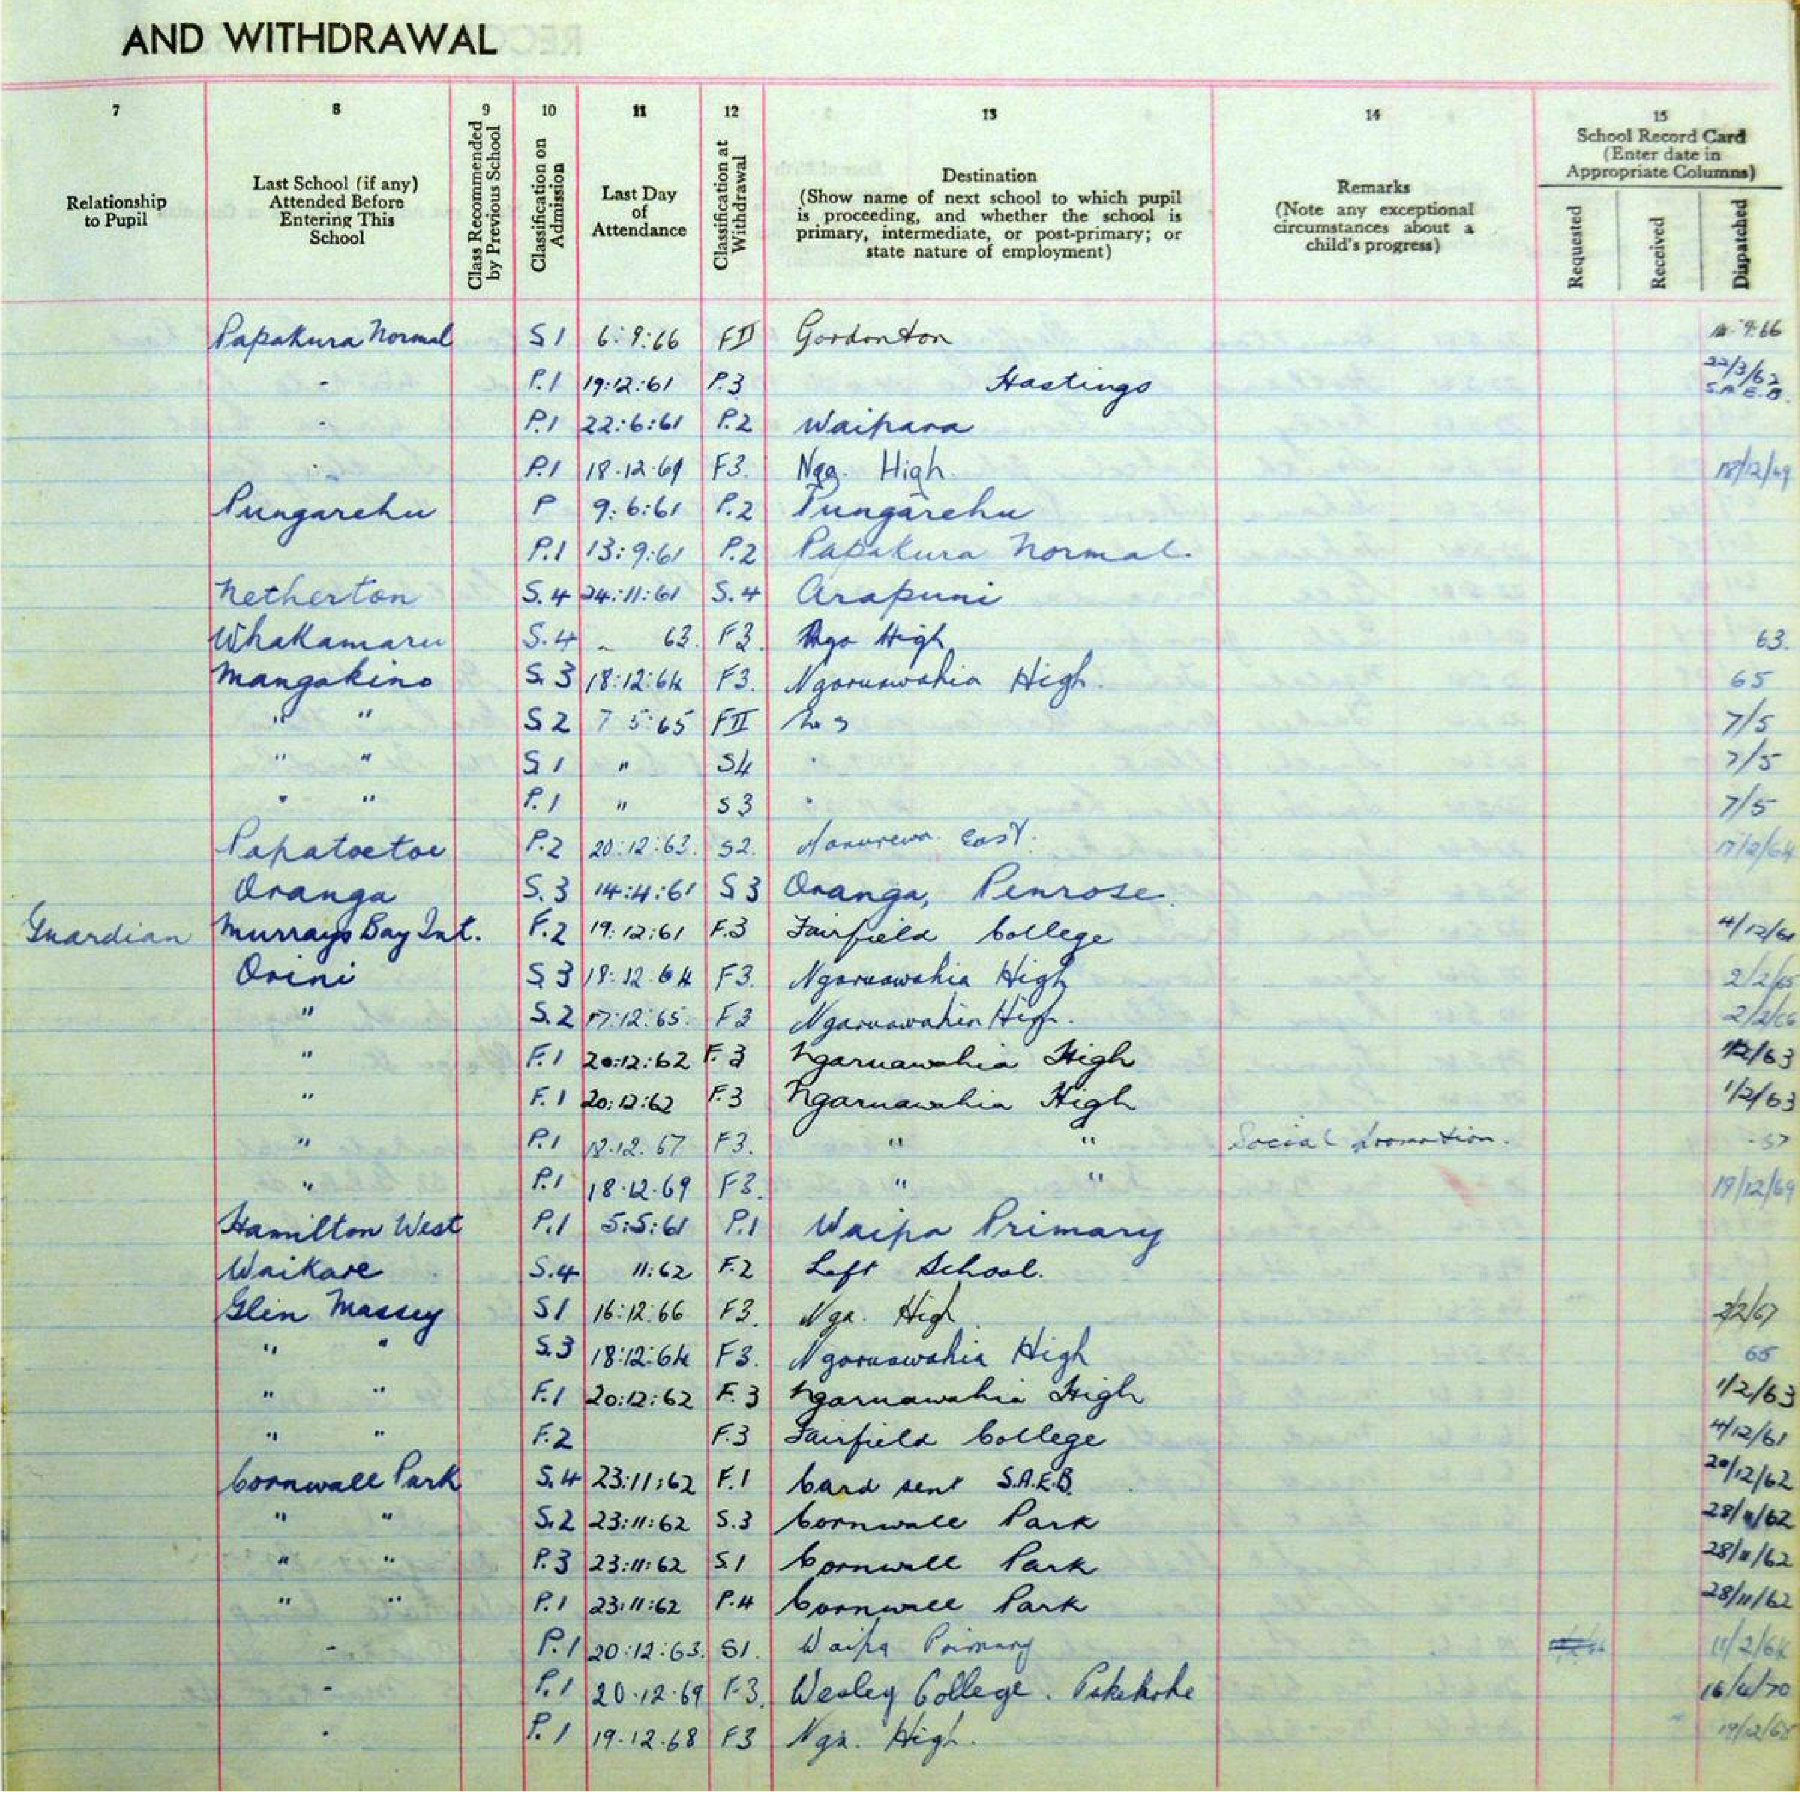 AND WITHDRAWAL
7 8 9 10 11 12 13 14 15
Relationship to Pupil
Last School (if any) Attended Before Entering This School
Class Recommended by Previous School
Classification on Admission
Last Day of Attendance
Classification at Withdrawal
Destination (Show name of next school to which pupil is proceeding, and whether the school is primary, intermediate, or post-primary; or state nature of employment)
Remarks (Note any exceptional circumstances about a child's progress)
School Record Card (Enter date in Appropriate Columns)
Requested Received Dispatched
Papakura Normal S1 6:9:66 FII Gordonton 9.66
- P.1 19:12:61 P.3 Hastings 22/3/62 S.A.E.B.
- P.1 22:6:61 P.2 Waipara
- P.1 18.12.69 F3. Nga. High. 18/12/69
Pungarehu P 9:6:61 P.2 Pungarehu
P.1 13:9:61 P.2 Papakura Normal.
Netherton S.4 24:11:61 S.4 Arapuni
Whakamaru S.4 63. F3. High 63.
Mangakino S.3 18:12:64 F3. Ngaruawahia High. 65
" " S2 7 5:65 FII 7/5
" " S1 " S4 7/5
" " P.1 " S3 7/5
Papatoetoe P.2 20:12:63. S2. Manurewa East. 17/2/64
Oranga S.3 14:4:61 S3 Oranga, Penrose.
Guardian Murrays Bay Int. F.2 19:12:61 F.3 Fairfield College 4/12/61
Orini S3 18:12.64 F3. Ngaruawahia High 2/2/65
" S.2 17:12:65. F3 Ngaruawahia High. 2/2/66
" F.1 20:12:62 F.3 Ngaruawahia High 1/2/63
" F.1 20:12:62 F.3 Ngaruawahia High 1/2/63
" P.1 12.67 F3. " " Social Promotion.
" P.1 18.12.69 F3. " " 19/12/69
Hamilton West P.1 5:5:61 P.1 Waipa Primary
Waikare S.4 11:62 F.2 Left School.
Glen Massey S1 16:12:66 F3. Nga. High. 2/2/67
" " S.3 18:12:64 F3. Ngaruawahia High 65
" " F.1 20:12:62 F.3 Ngaruawahia High 1/2/63
" " F.2 F.3 Fairfield College 4/12/61
Cornwall Park S.4 23:11:62 F.1 Card sent S.A.E.B. 20/12/62
" " S.2 23:11:62 S.3 Cornwall Park 28/11/62
" " P.3 23:11:62 S.1 Cornwall Park 28/11/62
" " P.1 23:11:62 P.4 Cornwall Park 28/11/62
- P.1 20:12:63. S1. Waipa Primary 11/2/64
- P.1 20.12.69 F3. Wesley College. Pukekohe 16/4/70
- P.1 19.12.68 F3 Nga. High. 19/12/68